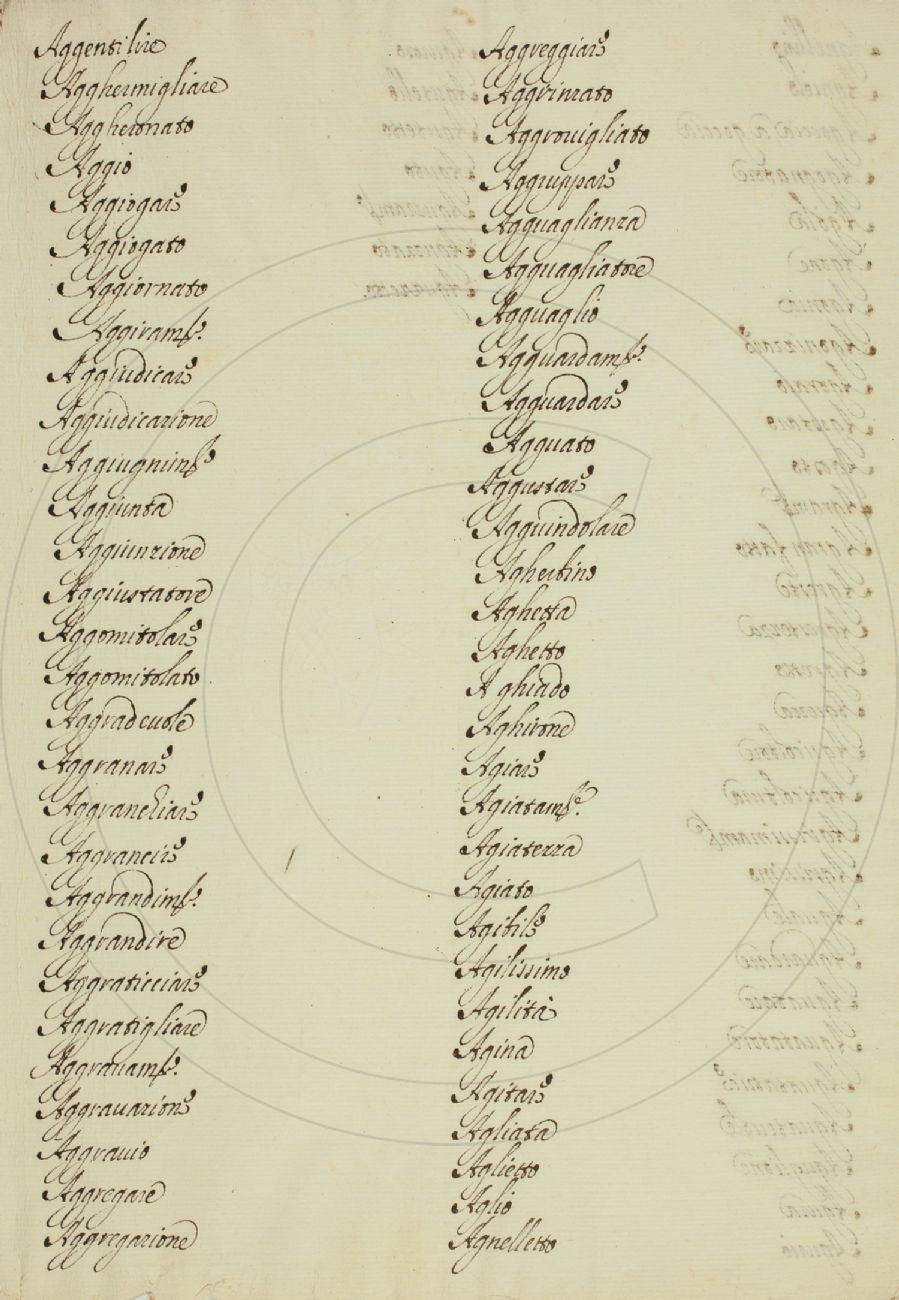 Aggentilire
Agghermigliare
Aggheronato
Aggio
Aggiogare
Aggiogato
Aggiornato
Aggiramto.
Aggiudicare
Aggiudicazione
Aggiugnimto
Aggiunta
Aggiunzione
Aggiustatore
Aggomitolare
Aggomitolato
Aggradeuole
Aggranare
Aggranchiare
Aggrancire
Aggrandimto.
Aggrandire
Aggraticciare
Aggratigliare
Aggrauamto.
Aggrauazione
Aggrauio
Aggregare
Aggregazione
Aggreggiare
Aggrinzato
Aggrouigliato
Aggruppare
Agguaglianza
Agguagliatore
Agguaglio
Agguardamto.
Agguardare
Agguato
Aggustare
Agguindolare
Agherbino
Aghetta
Aghetto
A ghiado
Aghirone
Agiare
Agiatamte.
Agiatezza
Agiato
Agibile
Agilissimo
Agilità
Agina
Agitare
Agliata
Aglietto
Aglio
Agnelletto